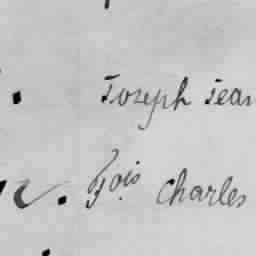 Joseph Jean
fois Charles